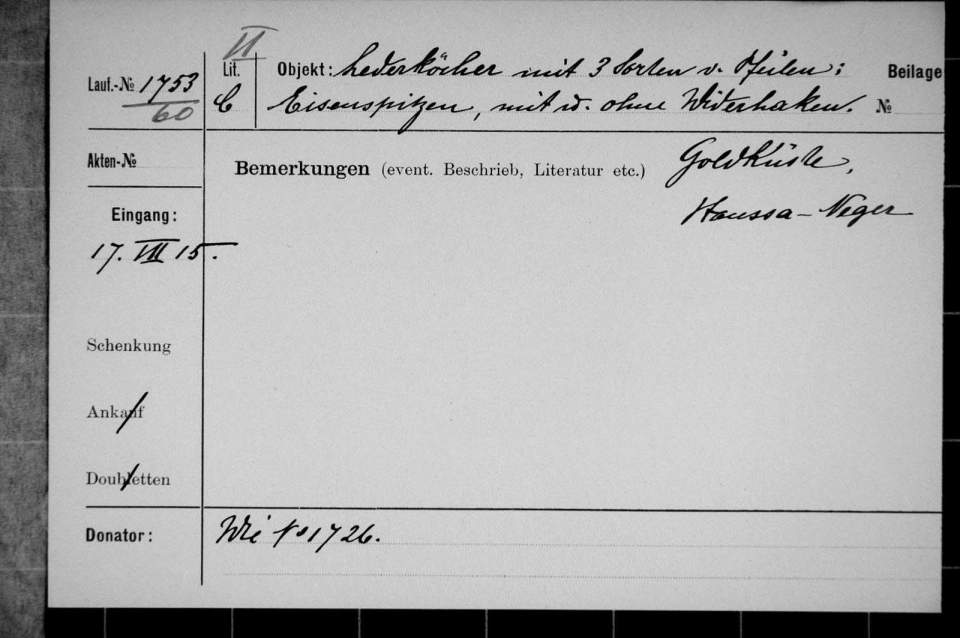 II
Lauf.-№ 1753
60
Lit.
C
Objekt: Lederköcher mit 3 Sorten v. Pfeilen:
Eisenspitzen, mit u. ohne Widerhaken.
Beilage
№
Akten-№
Bemerkungen (event. Beschrieb, Literatur etc.)
Goldküste,
Haussa-Neger
Eingang:
17. VII 15.
Schenkung
Ankauf
Doubletten
Donator:
Wie No 1726.